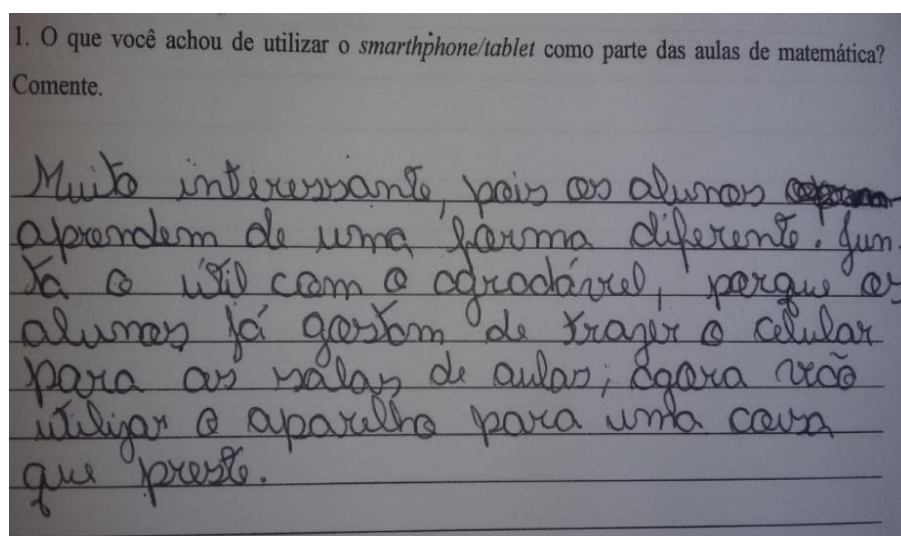 1. O que você achou de utilizar o smarthphone/tablet como parte das aulas de matemática?
Comente.
Muito interessante, pois os alunos
aprendem de uma forma diferente. Jun-
ta o útil com o agradável, porque os
alunos já gostam de trazer o celular
para as salas de aulas; agora vão
utilizar o aparelho para uma coisa
que preste.